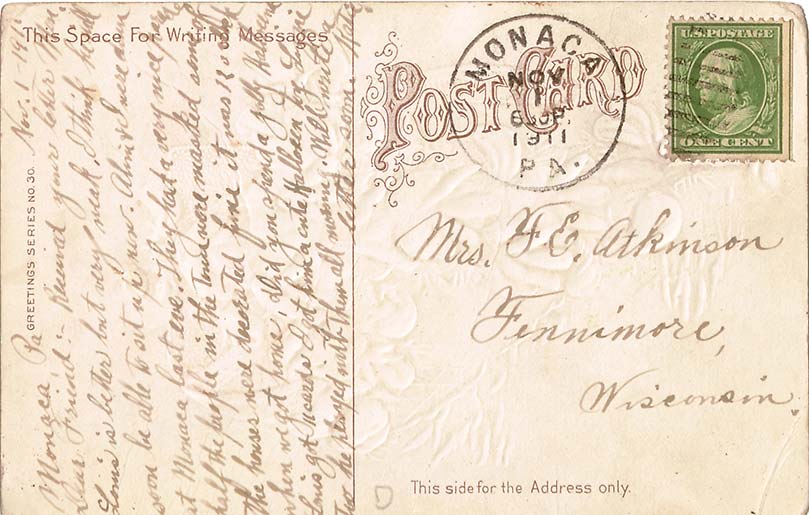 This Space For Writing Messages
GREETINGS SERIES NO. 30.
Monaca, Pa Nov. 1-1911
Dear Friend:- Received your letter
Louis is better but very weak. I think he'll
soon be able to sit up now. Alma & I were
at Monaca last eve. They had a very nice
half the people in the town were masked some of
the houses were decorated fine it was 12 o'clock
when we got home, Did you spend a jolly Hallowe'en
Louis got his cards & got him a cute Halloween
Too. he played with them all morning. Will write
letter soon.
POST CARD
MONACA
NOV
1
1911
PA.
U.S. POSTAGE
ONE CENT
Mrs. F.E. Atkinson
Fennimore,
Wisconsin.
This side for the Address only.